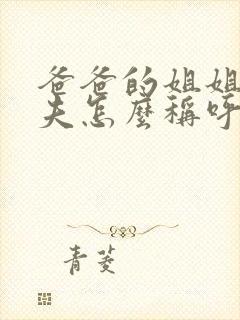 爸爸的姐姐
夫怎麼稱呼
青菱